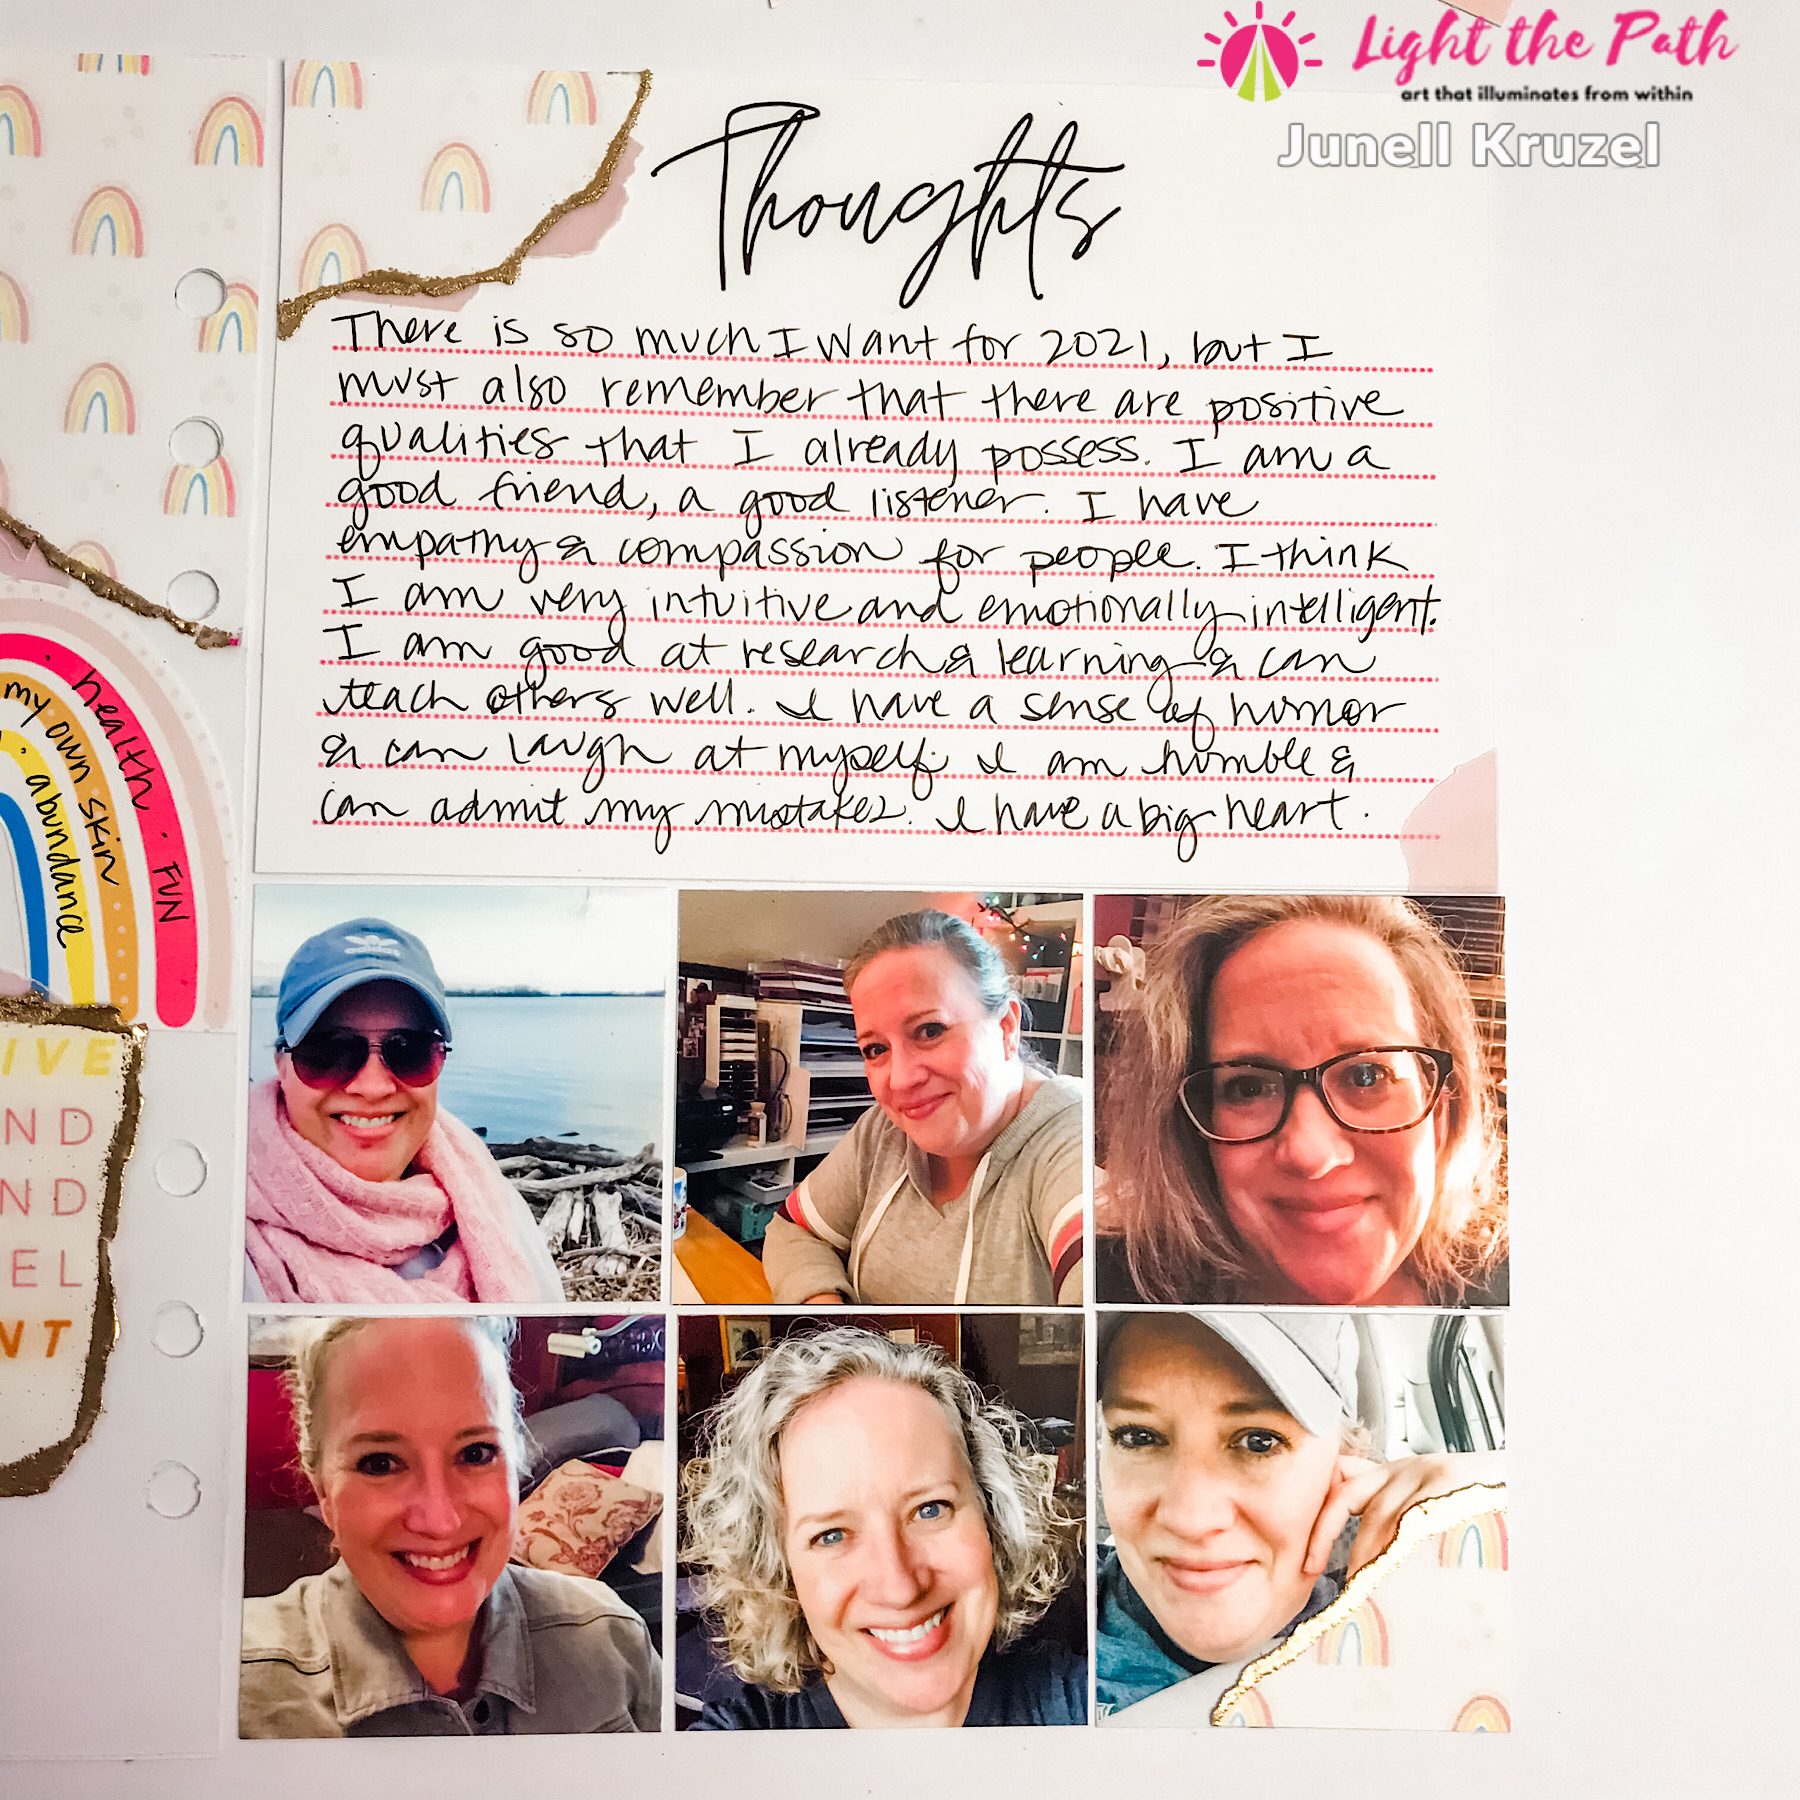 Light the Path
art that illuminates from within
Junell Kruzel
Thoughts
There is so much I want for 2021, but I
must also remember that there are positive
qualities that I already possess. I am a
good friend, a good listener. I have
empathy & compassion for people. I think
I am very intuitive and emotionally intelligent.
I am good at research & learning & can
teach others well. I have a sense of humor
& can laugh at myself. I am humble &
can admit my mistakes. I have a big heart.
health · FUN
my own skin
· abundance
IVE
ND
ND
EL
NT
adidas